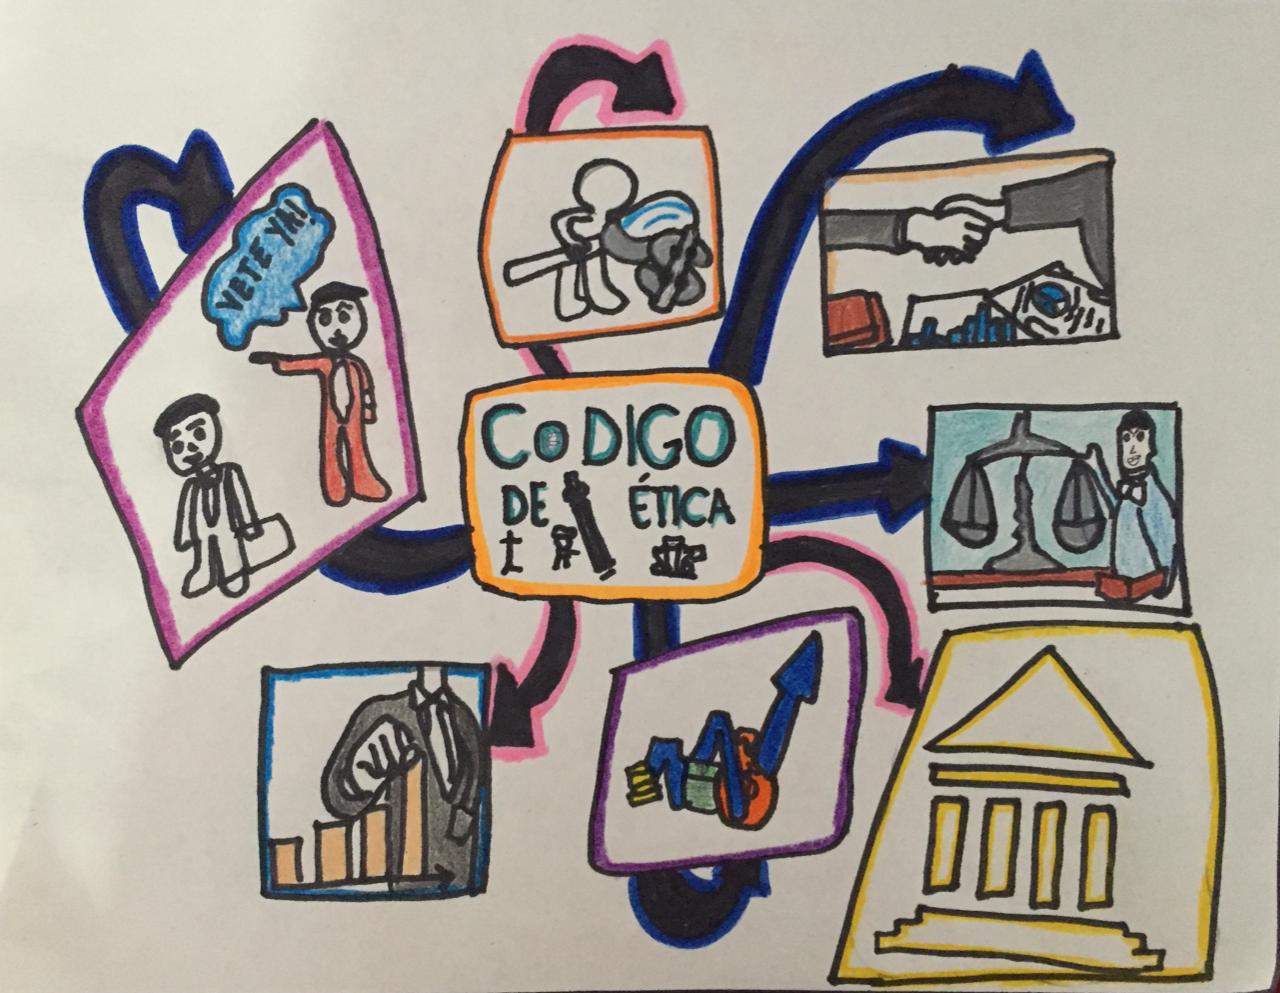 VETE YA!
CODIGO
DE ÉTICA